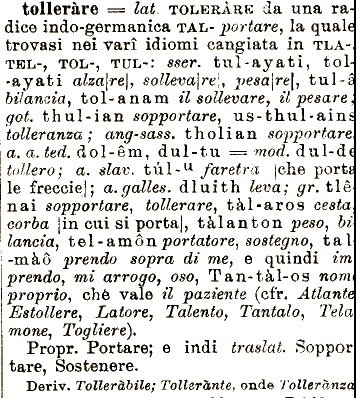 tolleràre = lat. TOLERÀRE da una ra-
dice indo-germanica TAL- portare, la quale
trovasi nei varî idiomi cangiata in TLA-
TEL-, TOL-, TUL-: sscr. tul-ayati, tol-
-ayati alza|re|, solleva|re|, pesa|re|, tul-â
bilancia, tol-anam il sollevare, il pesare;
got. thul-ian sopportare, us-thul-ains
tolleranza; ang-sass. tholian sopportare
a. a. ted. dol-êm, dul-tu = mod. dul-de
tollero; a. slav. túl-u faretra |che porta
le freccie|; a. galles. dluith leva; gr. tlê-
nai sopportare, tollerare, tàl-aros cesta,
corba |in cui si porta|, tàlanton peso, bi-
lancia, tel-amôn portatore, sostegno, tal
-màô prendo sopra di me, e quindi im
prendo, mi arrogo, oso, Tan-tàl-os nome
proprio, chè vale il paziente (cfr. Atlante
Estollere, Latore, Talento, Tantalo, Tela
mone, Togliere).
Propr. Portare; e indi traslat. Soppor
tare, Sostenere.
Deriv. Tolleràbile; Tollerànte, onde Tollerànza